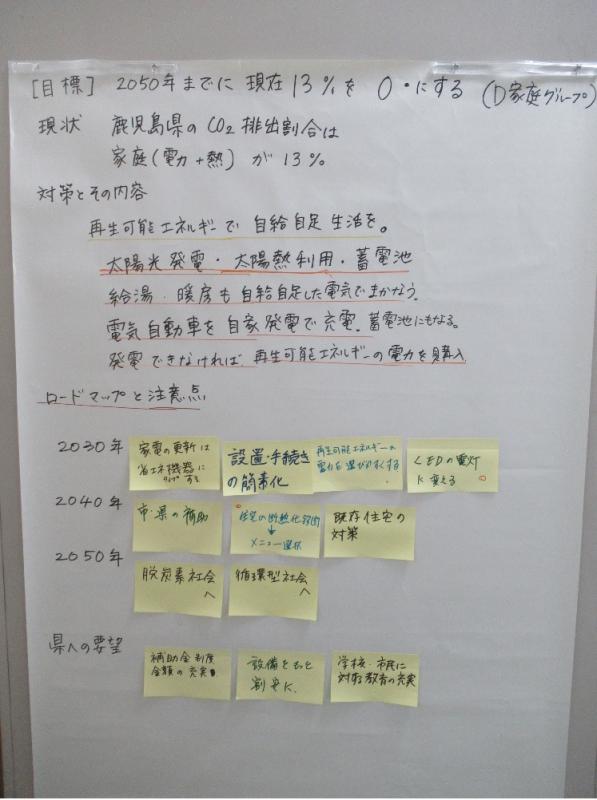 [目標] 2050年までに 現在13%を 0・にする (D家庭グループ)
現状 鹿児島県のCO2排出割合は
家庭(電力+熱)が13%
対策とその内容
再生可能エネルギーで自給自足生活を。
太陽光発電・太陽熱利用・蓄電池
給湯・暖房も自給自足した電気でまかなう。
電気自動車を自家発電で充電。蓄電池にもなる。
発電できなければ、再生可能エネルギーの電力を購入
ロードマップと注意点
2030年
家電の更新は
省エネ機器に
する
設置・手続き
の簡素化
再生可能エネルギーの
電力を選びやすくする
LEDの電灯
に変える
2040年
市・県の補助
住宅の断熱化
↓
メニュー選択
既存住宅の
対策
2050年
脱炭素社会
へ
循環型社会
へ
県への要望
補助金制度
金額の充実
設備をもっと
割安に
学校・市民に
対する教育の充実